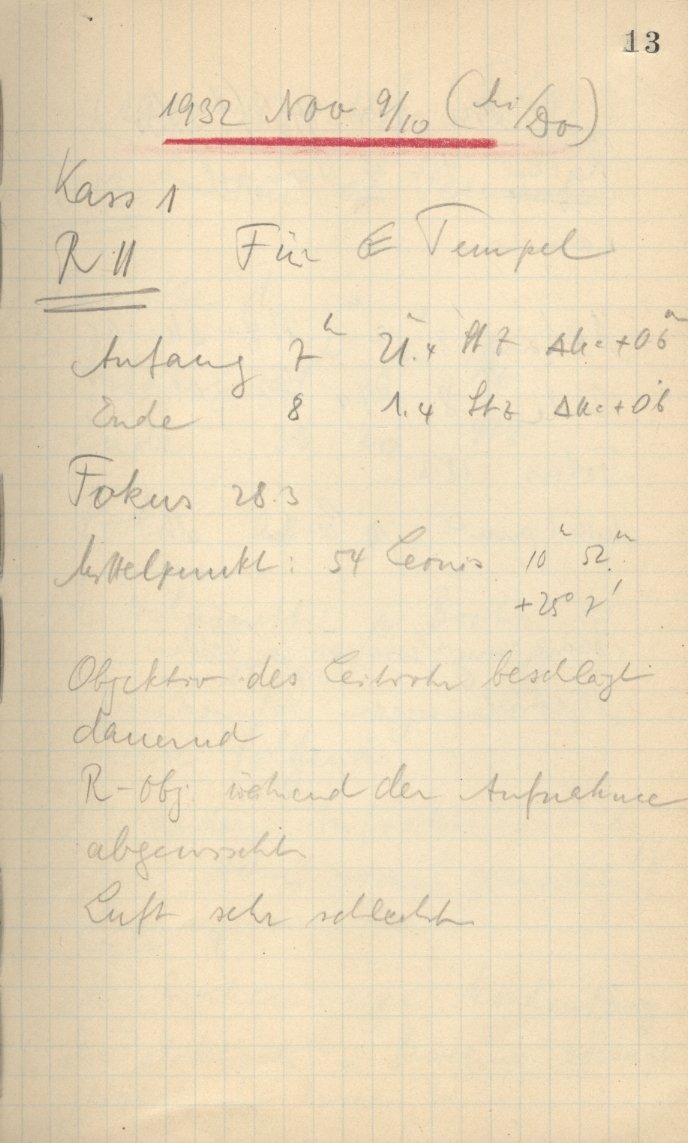 13
1932 Nov 9/10 (  /Do)
Kass 1
R II Für Tempel
Anfang 7h 21.4 Stz Δu = +0.6
Ende 8 1.4 Stz Δu = +0.6
Fokus 28.3
Mittelpunkt: 54 Leonis 10h 52m
+25° 7'
Objektiv des Leitrohr beschlägt
dauernd
R-Obj. während der Aufnahme
abgewischt
Luft sehr schlecht